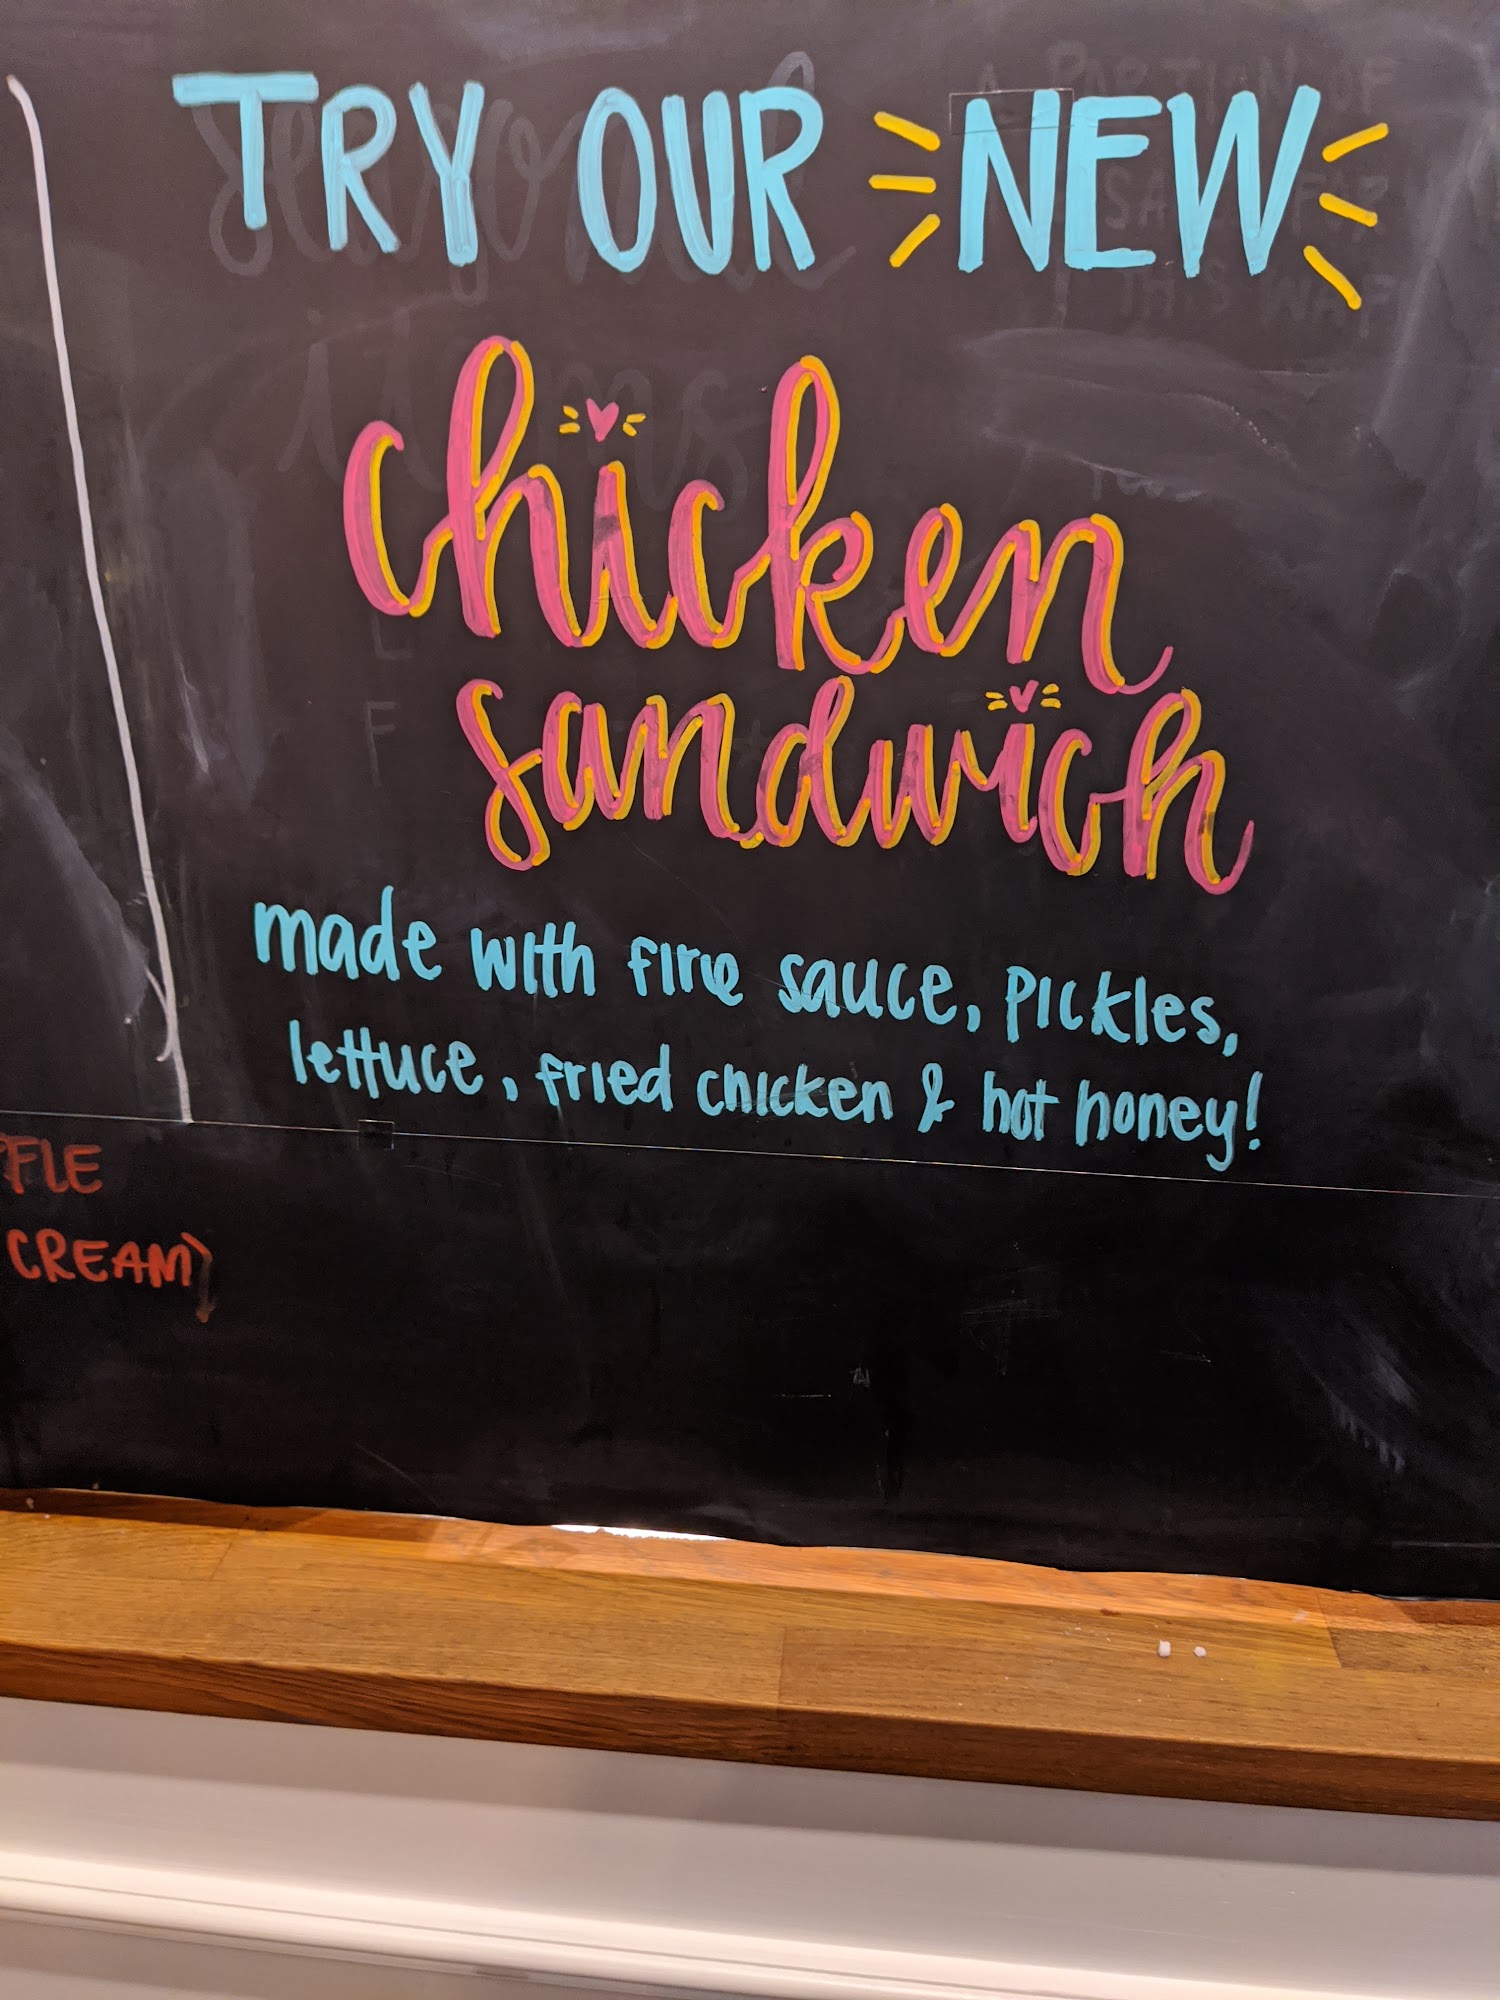 TRY OUR NEW
chicken
sandwich
made with fire sauce, pickles,
lettuce, fried chicken & hot honey!
CREAM)